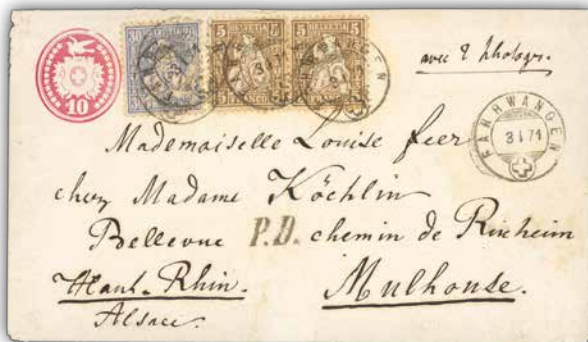 10
30
HELVETIA
5
5
FRANCO
FRANCO
avec 2 photogr.
FAHRWANGEN
3 I 71
Mademoiselle Louise Feer
chez Madame Köchlin
Bellevue P.D. chemin de Rixheim
Haut-Rhin. Mulhouse.
Alsace.